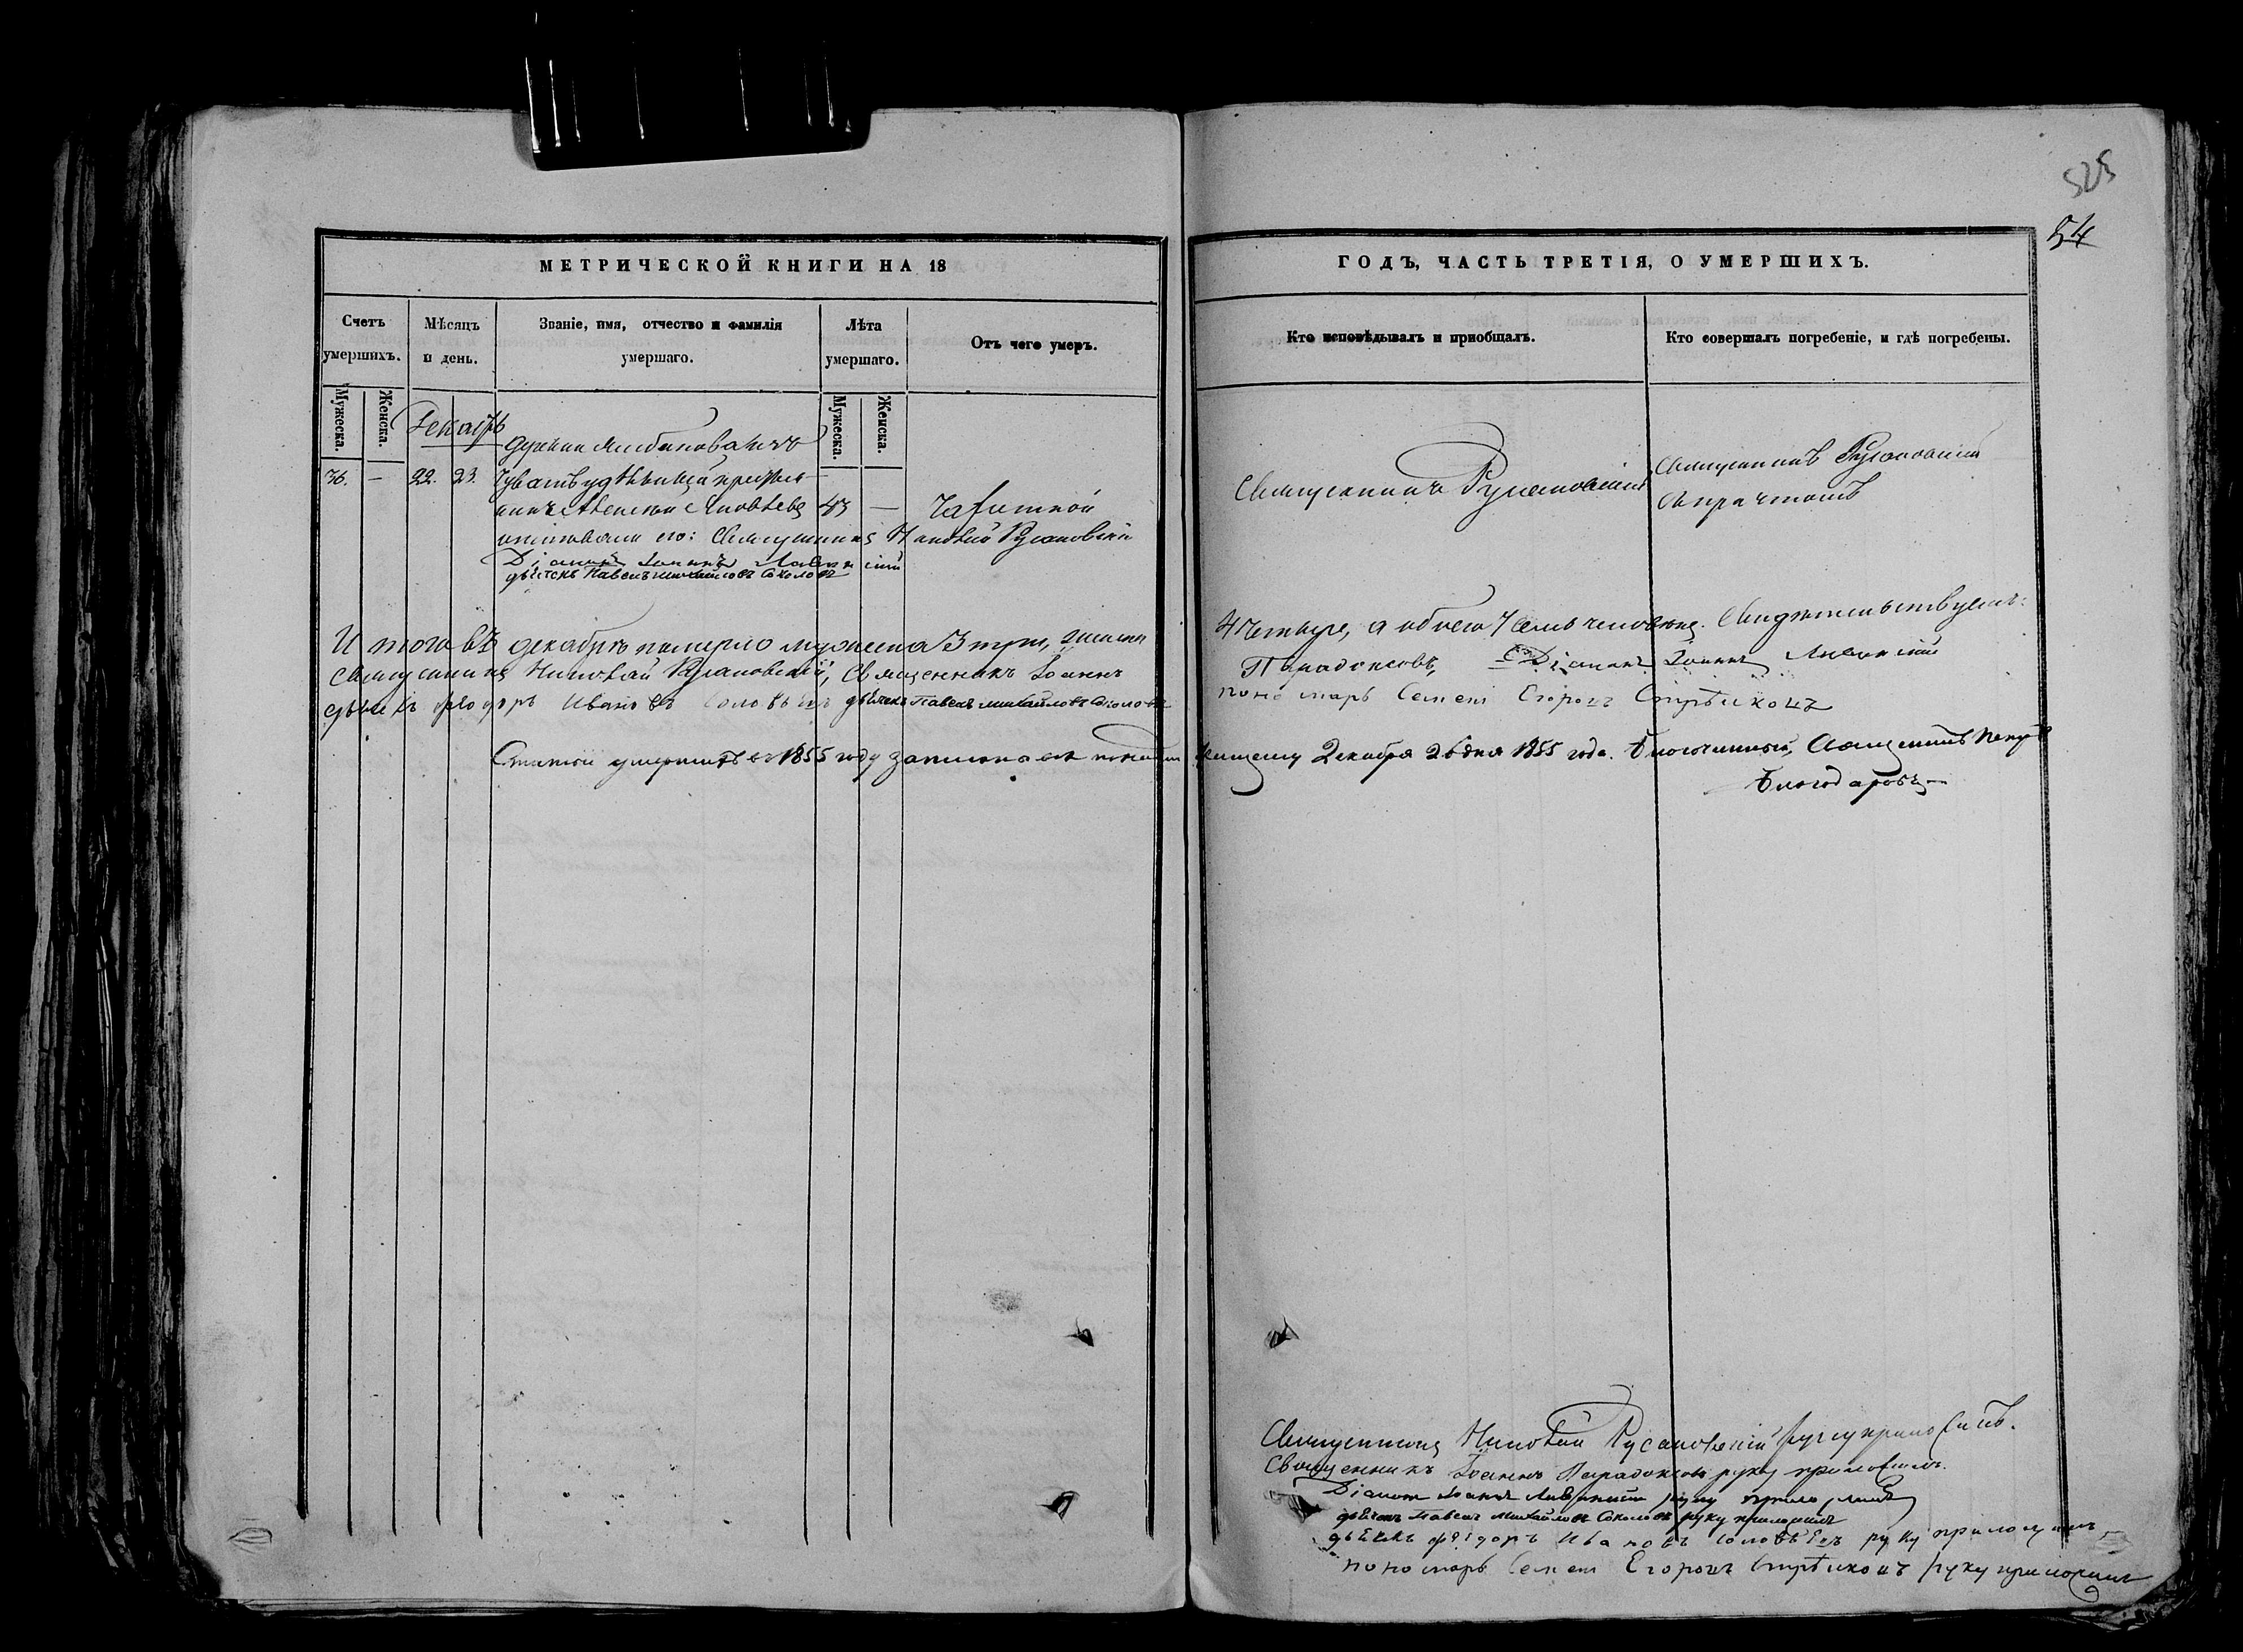 525
54
МЕТРИЧЕСКОЙ КНИГИ НА 18
ГОДЪ, ЧАСТЬ ТРЕТІЯ, О УМЕРШИХЪ.
Счетъ умершихъ.
Мѣсяцъ и день.
Званіе, имя, отчество и фамилія умершаго.
Лѣта умершаго.
Отъ чего умеръ.
Кто исповѣдывалъ и пріобщалъ.
Кто совершалъ погребеніе, и гдѣ погребены.
Мужеска.
Женска.
Мужеска.
Женска.
Декабрь
деревни
36. — 22. 23.
Яковлевъ 43 — чахоткой
Священникъ Русановскій
Священникъ Русановскій
съ причтомъ
его: Священникъ Николай Русановскій
Діаконъ Іоаннъ
дьячекъ Павелъ Михайловъ Соколовъ
Итого въ декабрѣ померло мужеска 3 три, женска
4 четыре, а обоего 7 семь человѣкъ. Свидѣтельствуемъ:
Священникъ Николай Русановскій, Священникъ Іоаннъ
Парадоксовъ, Діаконъ Іоаннъ
дьячекъ Ѳеодоръ Ивановъ Соловьевъ дьячекъ Павелъ Михайловъ Соколовъ
пономарь Семенъ Егоровъ Стрѣлковъ
умершихъ въ 1855 году
Декабря 26 дня 1855 года. Благочинный, Священникъ Петръ
Благодаровъ
Священникъ Николай Русановскій руку приложилъ.
Священникъ Іоаннъ Парадоксовъ руку приложилъ.
Діаконъ Іоаннъ руку приложилъ
дьячекъ Павелъ Михайловъ Соколовъ руку приложилъ
дьячекъ Ѳеодоръ Ивановъ Соловьевъ руку приложилъ
пономарь Семенъ Егоровъ Стрѣлковъ руку приложилъ